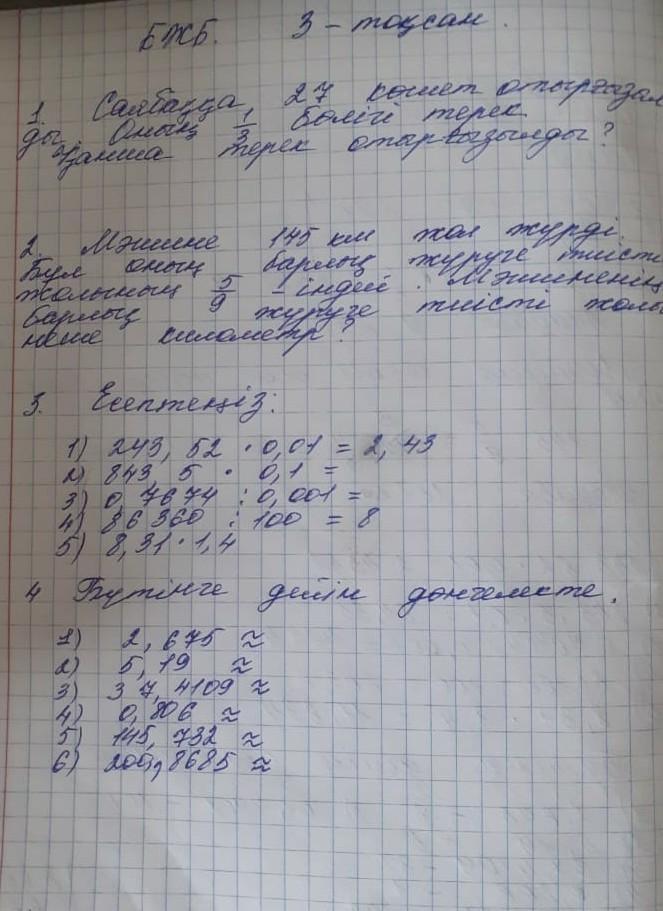 БЖБ. 3 - тоқсан.
1. Саябаққа 27 көшет отырғызыл
ды. Оның 1/3 бөлігі терек.
Қанша терек отырғызылды?
2. Машине 145 км жол жүрді.
Бұл оның барлық жүруге тиісті
жолының 5/9 -індей. Машиненің
барлық жүруге тиісті жолы
неше километр?
3. Есептеңіз:
1) 243,52 · 0,01 = 2,43
2) 843 5 · 0,1 =
3) 0,7674 : 0,001 =
4) 86360 : 100 = 8
5) 8,31 · 1,4
4 Бүтінге дейін дөңгелекте.
1) 2,675 ≈
2) 5,19 ≈
3) 37,4109 ≈
4) 0,806 ≈
5) 145,732 ≈
6) 200,8685 ≈